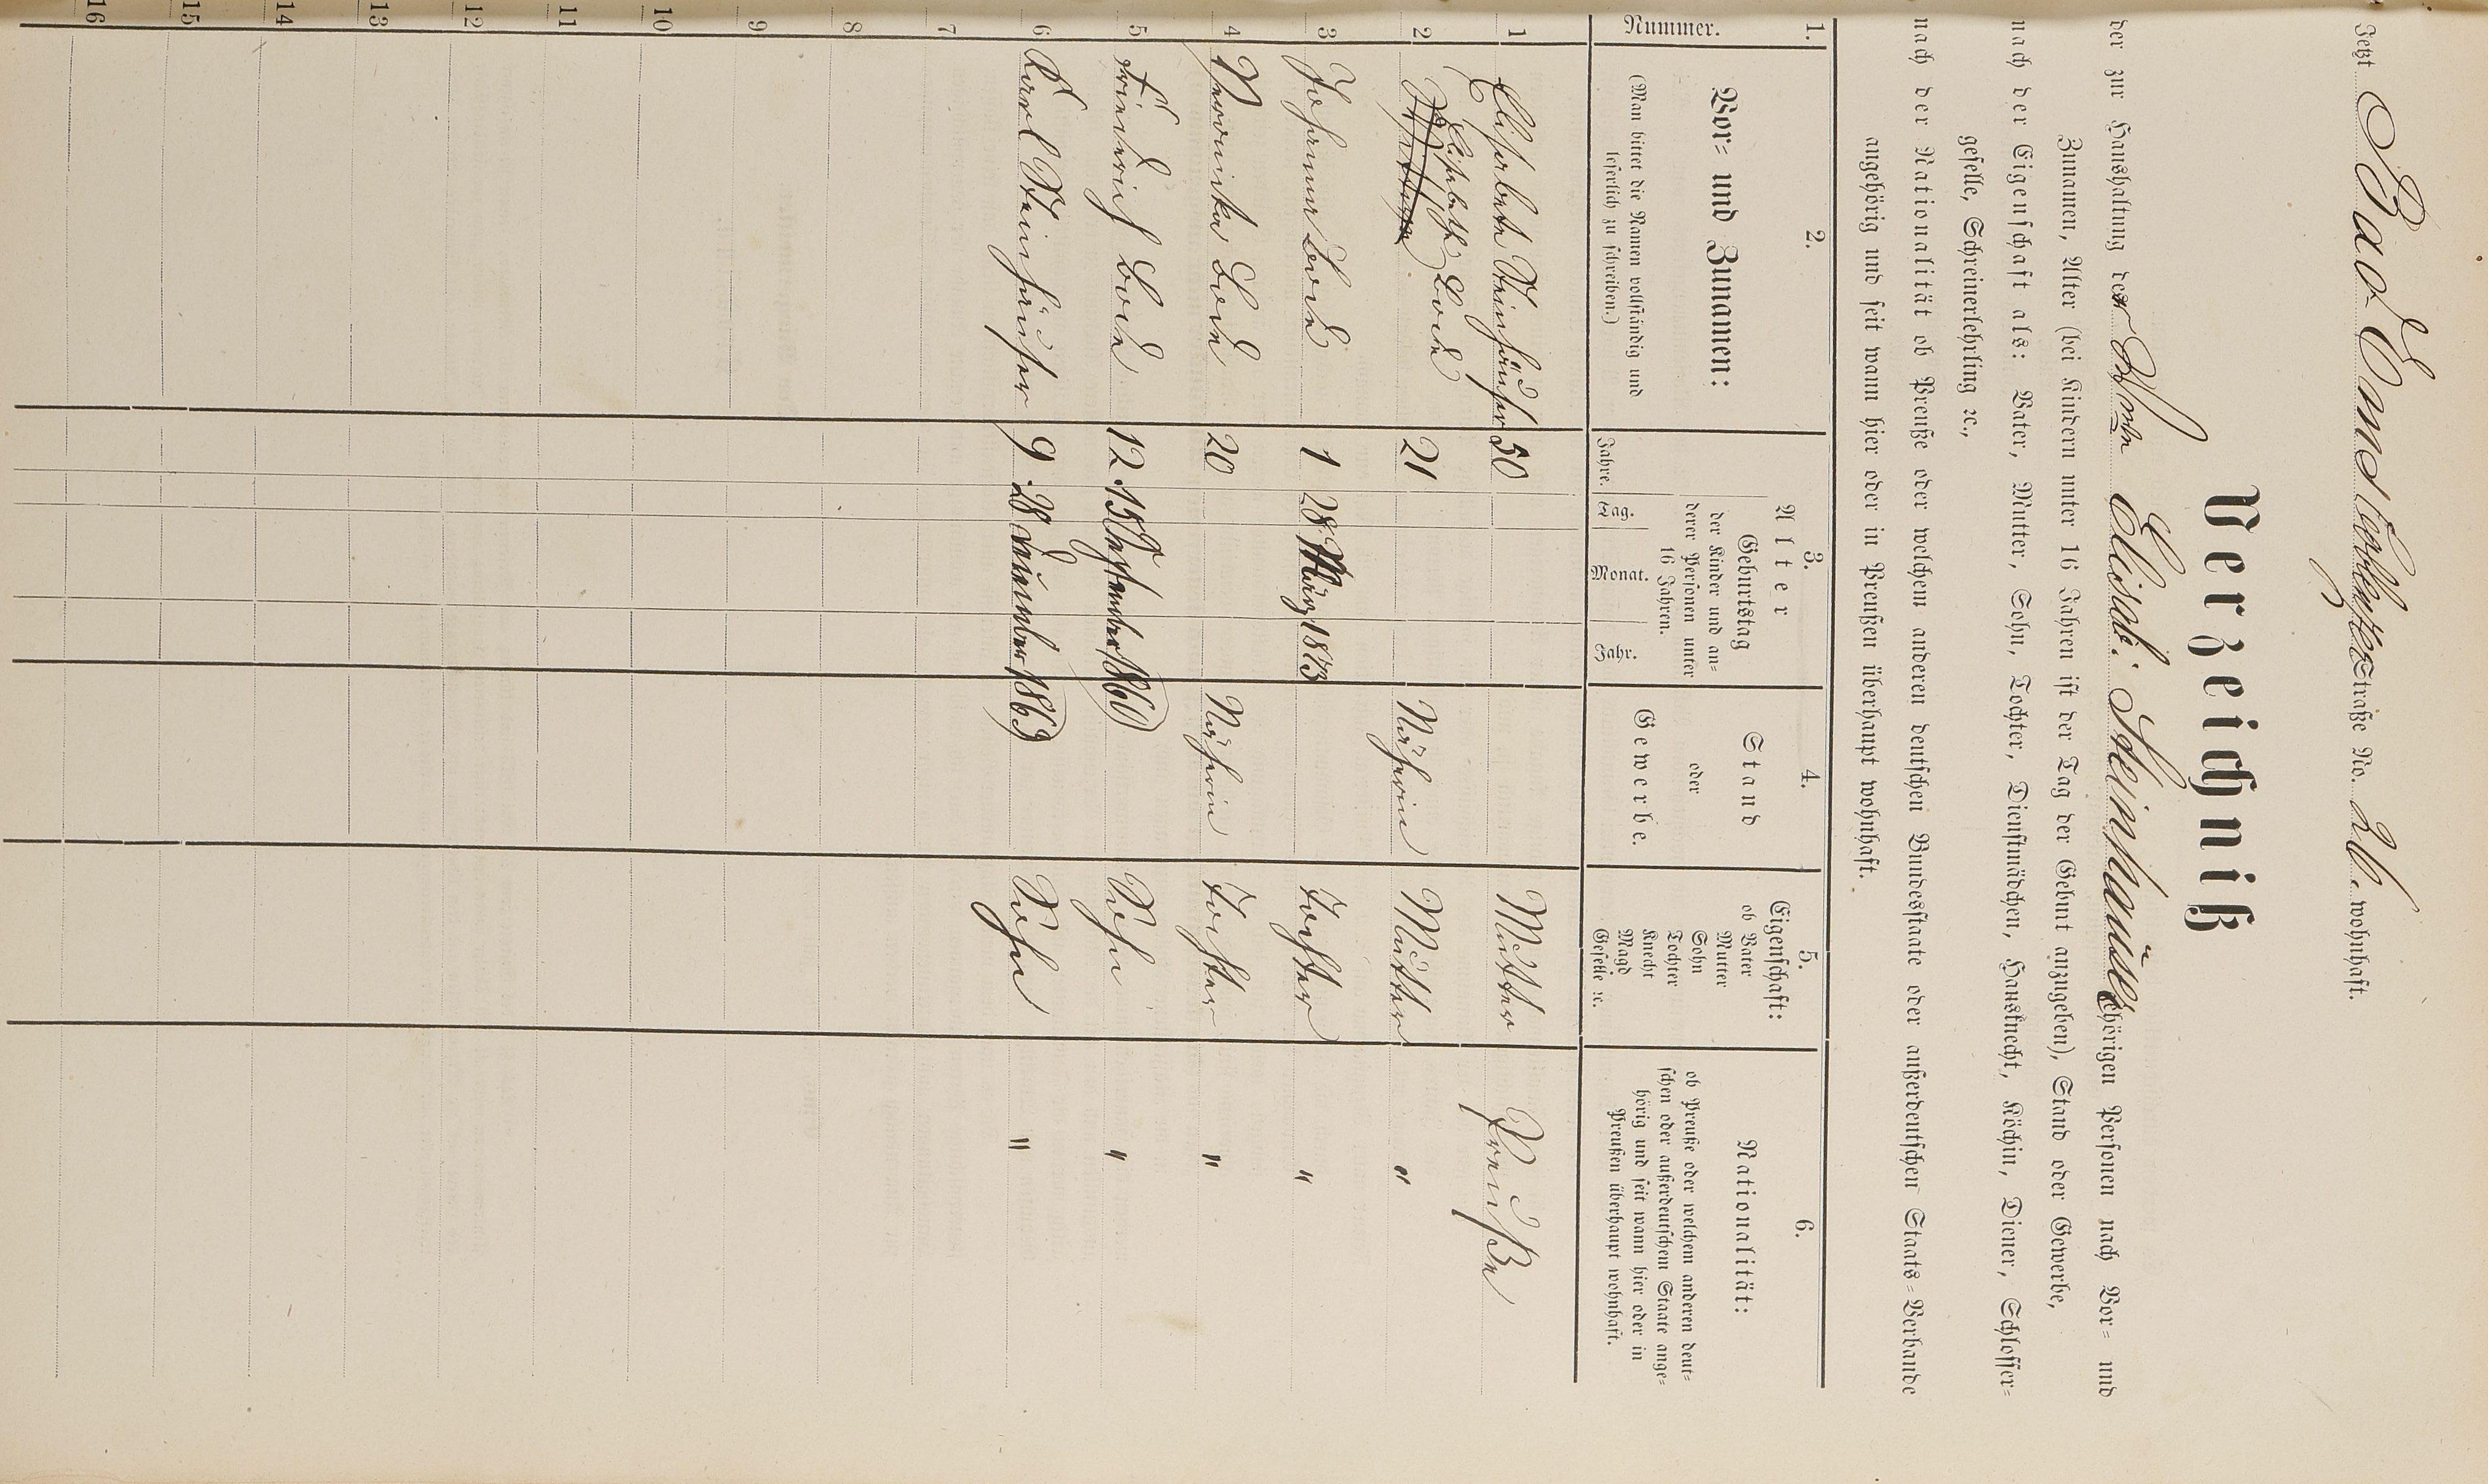 Jetzt Bad Ems Coblenzer Straße No. 26. wohnhaft.
Verzeichniß
der zur Haushaltung der Wwe Elisab: Steinhäuser gehörigen Personen nach Vor- und
Zunamen, Alter (bei Kindern unter 16 Jahren ist der Tag der Geburt anzugeben), Stand oder Gewerbe,
nach der Eigenschaft als: Vater, Mutter, Sohn, Tochter, Dienstmädchen, Hausknecht, Köchin, Diener, Schlosser-
geselle, Schreinerlehrling ꝛc.,
nach der Nationalität ob Preuße oder welchem anderen deutschen Bundesstaate oder außerdeutschen Staats-Verbande
angehörig und seit wann hier oder in Preußen überhaupt wohnhaft.
1. 2. 3. 4. 5. 6.
Nummer.
Vor- und Zunamen:
(Man bittet die Namen vollständig und
leserlich zu schreiben.)
Alter
Geburtstag
der Kinder und an-
derer Personen unter
16 Jahren.
Jahre. Tag. Monat. Jahr.
Stand
oder
Gewerbe.
Eigenschaft:
ob Vater
Mutter
Sohn
Tochter
Knecht
Magd
Geselle ꝛc.
Nationalität:
ob Preuße oder welchem anderen deut-
schen oder außerdeutschem Staate ange-
hörig und seit wann hier oder in
Preußen überhaupt wohnhaft.
1 Elisabeta Steinhäuser 50 Mutter Preuße
2 Elisabeth Bode 21 Näherin Mutter "
3 Johanna Bode 1 28 März 1873 Tochter "
4 Veronika Bode 20 Näherin Tochter "
5 Friederich Bode 12 15 September 1860 Sohn "
6 Karl Steinhäuser 9 28 1863 Sohn "
7
8
9
10
11
12
13
14
15
16